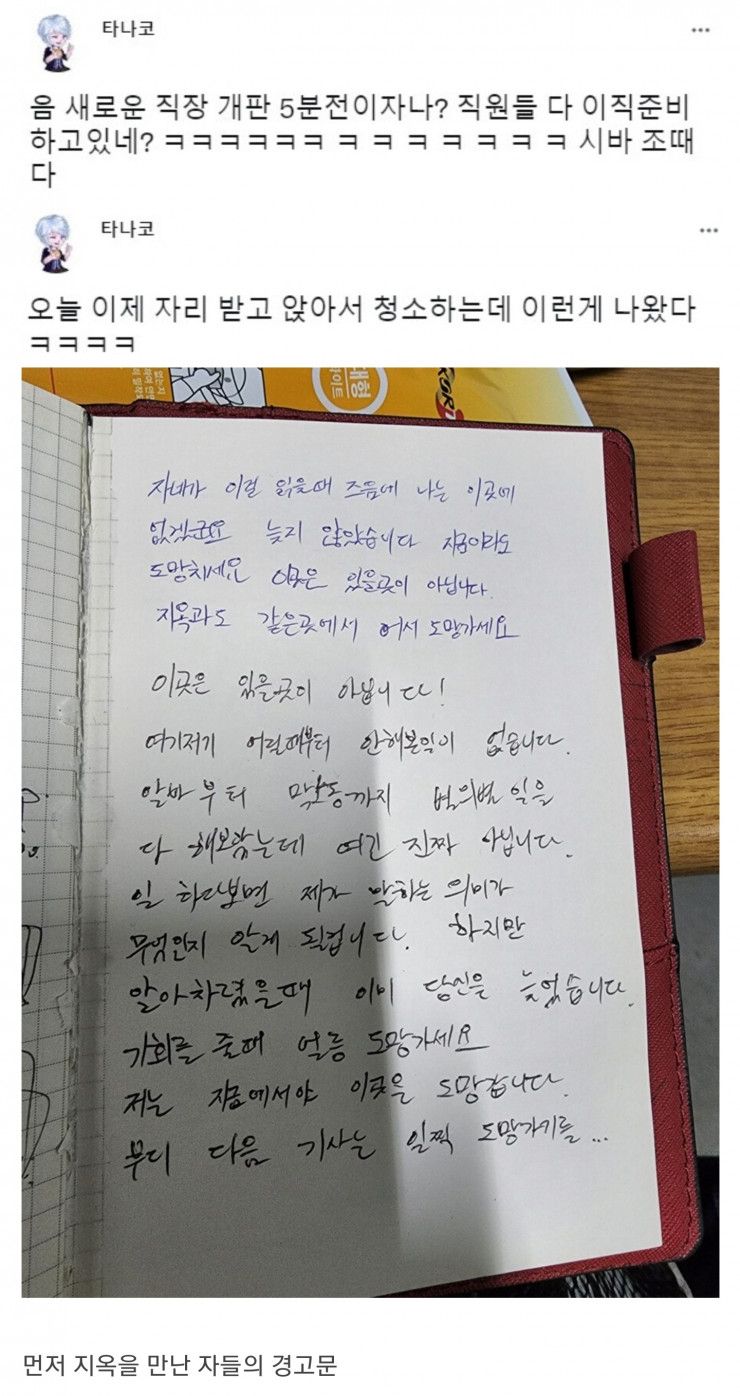 타나코
음 새로운 직장 개판 5분전이자나? 직원들 다 이직준비
하고있네? ㅋㅋㅋㅋㅋㅋㅋ ㅋ ㅋ ㅋ ㅋ ㅋ ㅋ ㅋ ㅋ 시바 조때
다
타나코
오늘 이제 자리 받고 앉아서 청소하는데 이런게 나왔다
ㅋㅋㅋㅋ
자네가 이걸 읽을때 즈음에 나는 이곳에
없겠군요 늦지 않았습니다 지금이라도
도망치세요 이곳은 있을곳이 아닙니다.
지옥과도 같은곳에서 어서 도망가세요
이곳은 있을곳이 아닙니다!
여기저기 어릴때부터 안해본일이 없습니다.
알바부터 막노동까지 별의별 일을
다 해보았는데 여긴 진짜 아닙니다.
일 하다보면 제가 말하는 의미가
무엇인지 알게 될겁니다. 하지만
알아차렸을때 이미 당신은 늦었습니다.
기회를 줄때 얼릉 도망가세요
저는 지금에서야 이곳을 도망갑니다.
부디 다음 기사는 일찍 도망가기를...
먼저 지옥을 만난 자들의 경고문